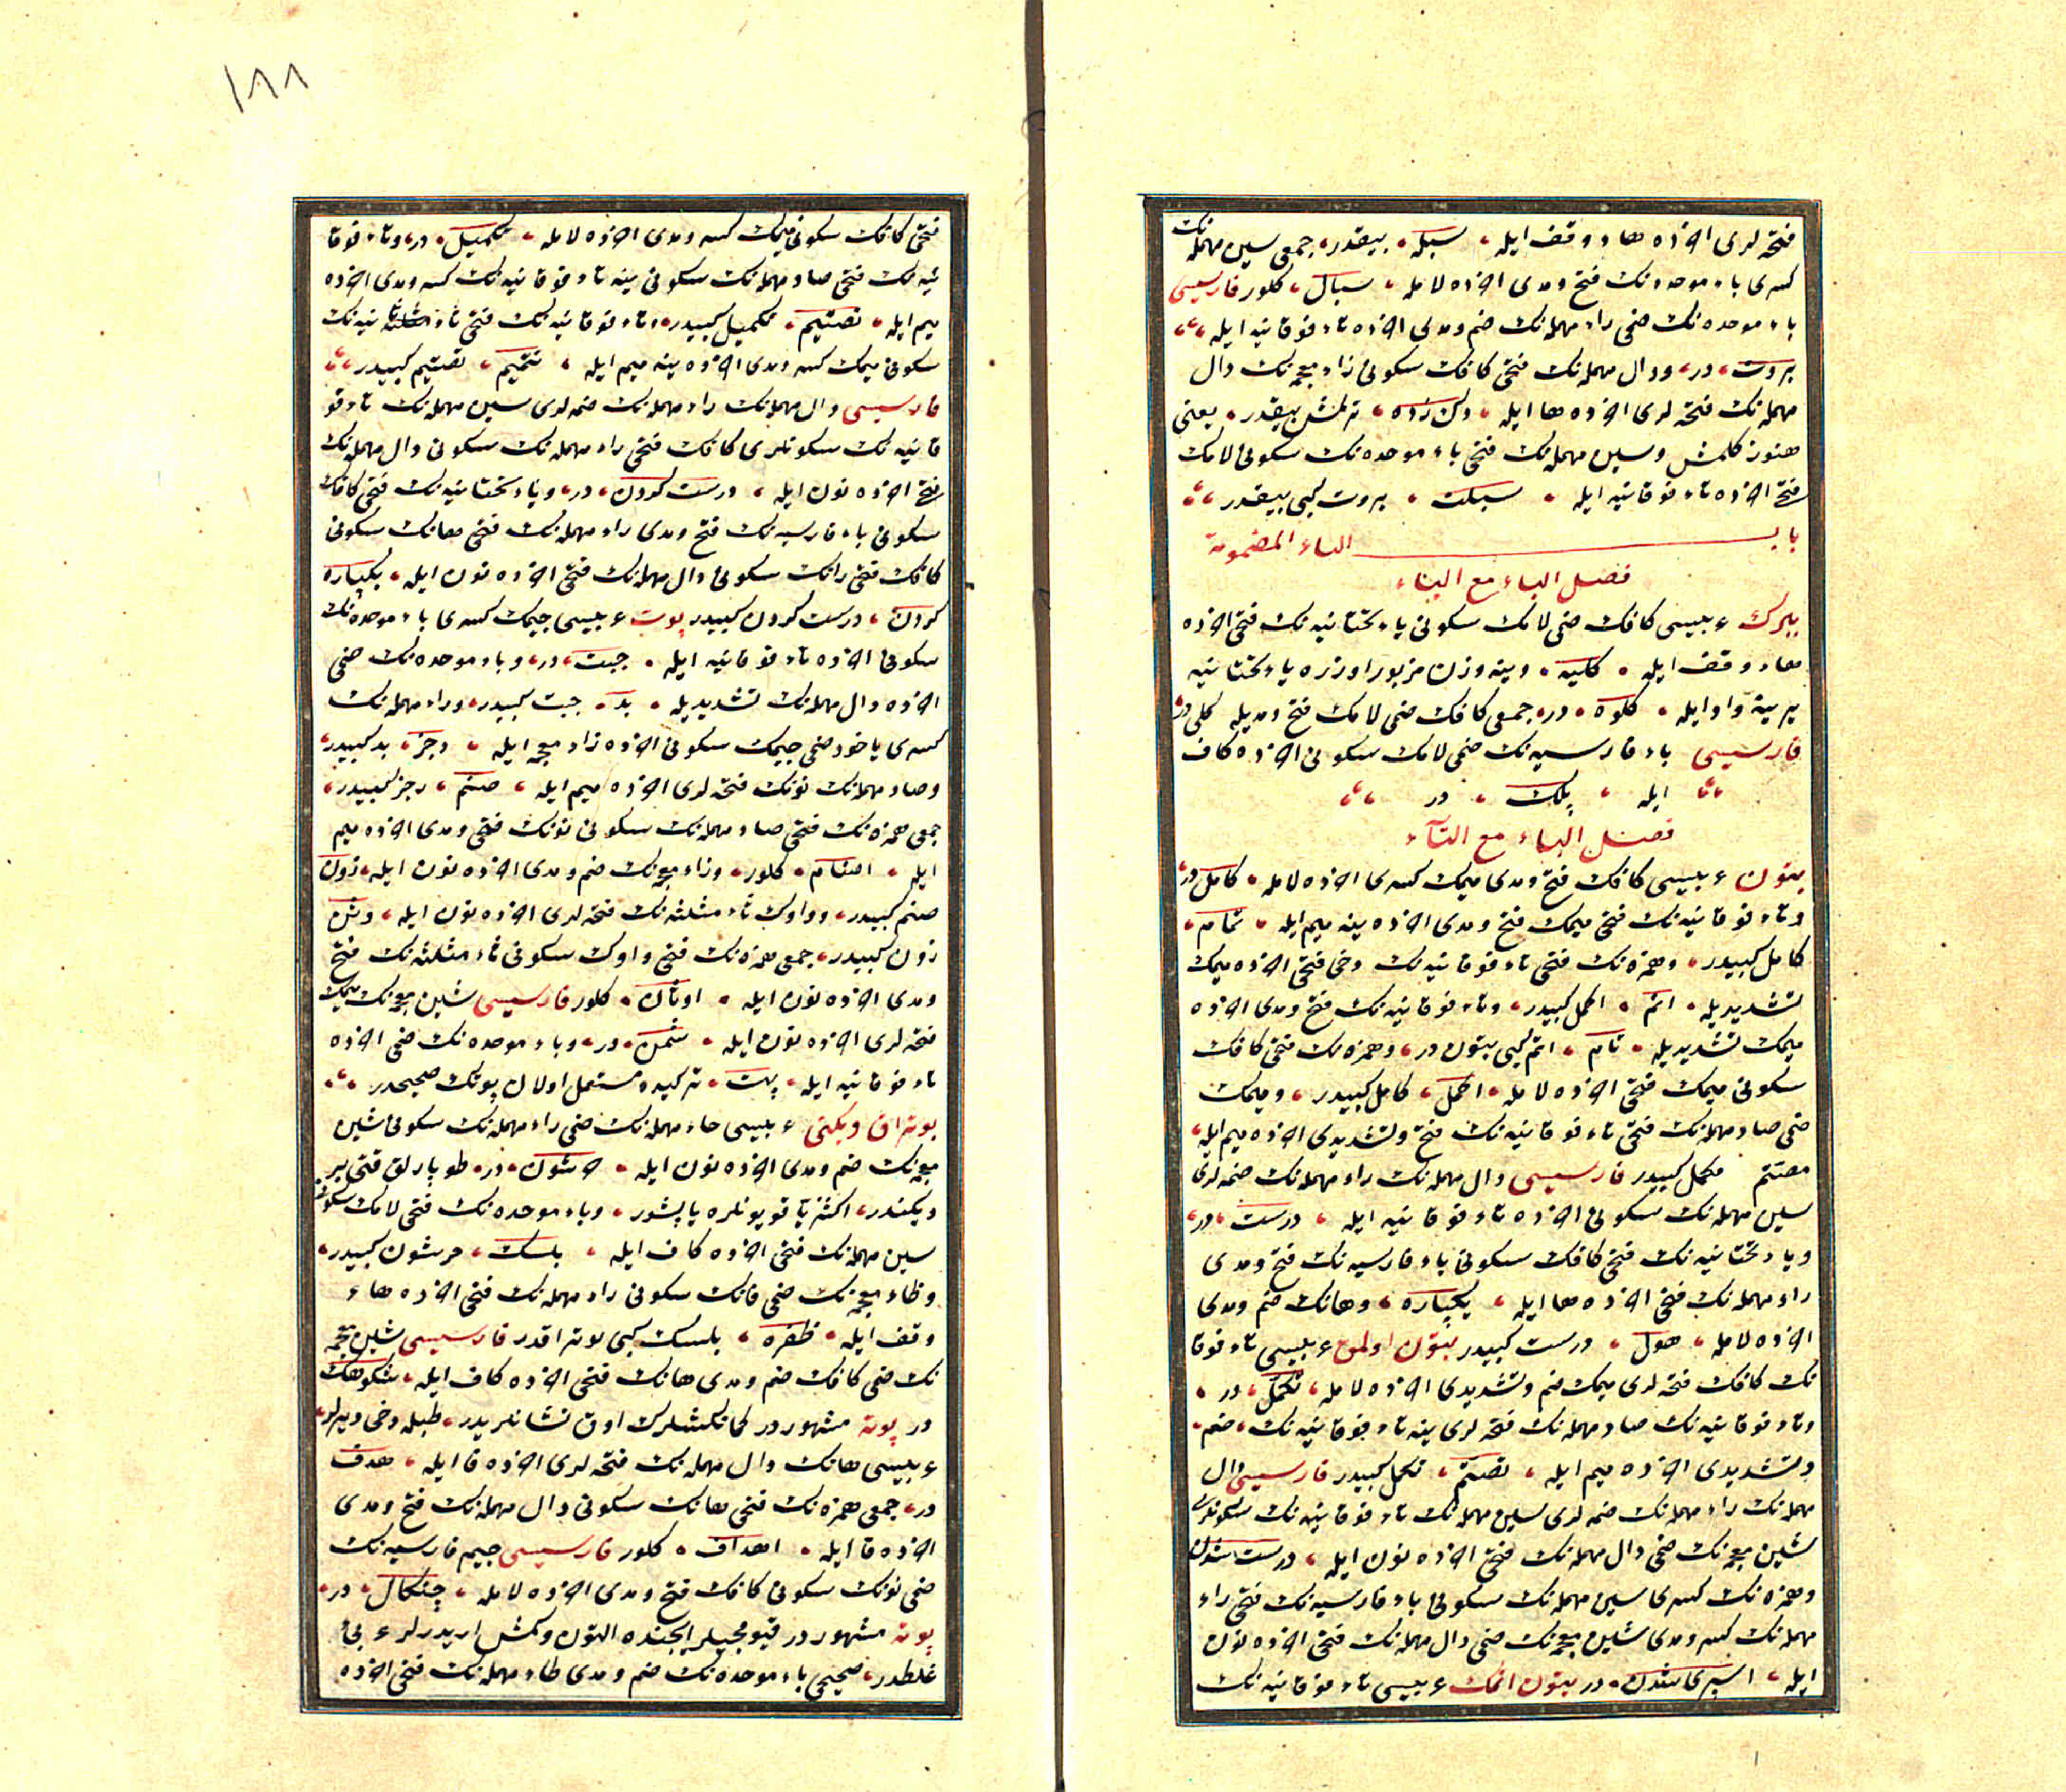 فتحه لری اخرده هاء وقف ایله ، سبله ، بیقدر ، جمعی سین مهمله نك
کسری باء موحده نك فتح و مدی اخرده لامله ، سبال ، کلور فارسیسی
باء موحده نك ضمی راء مهمله نك ضم و مدی اخرده تاء فوقانیه ایله ،،
بروت ، در ، و دال مهمله نك فتحی کافك سکونی زاء معجمه نك دال
مهمله نك فتحه لری اخرده ها ایله ، دکن زده ، ترلمش بیقدر ، یعنی
هنوز کلمش و سین مهمله نك فتحی باء موحده نك سکونی لامك
فتحی اخرده تاء فوقانیه ایله ، سبلت ، بروت کبی بیقدر ،،
باب الباء المضمومة
فصل الباء مع الباء
ببرك عربیسی کافك ضمی لامك سکونی یاء تحتانیه نك فتحی اخرده
هاء وقف ایله ، کلیه ، وینه وزن مزبور اوزره یاء تحتانیه
یرینه واو ایله ، کلوه ، در ، جمعی کافك ضمی لامك فتح و مدیله کلی در
فارسیسی باء فارسیه نك ضمی لامك سکونی اخرده کاف
ایله ، پلك ، در ،،
فصل الباء مع التاء
بتون عربیسی کافك فتح و مدی میمك کسری اخرده لامله ، کامل در ،
و تاء فوقانیه نك فتحی میمك فتح و مدی اخرده ینه میم ایله ، تمام ،
کامل کبیدر ، و همزه نك فتحی تاء فوقانیه نك دخی فتحی اخرده میمك
تشدیدیله ، اتم ، اکمل کبیدر ، و تاء فوقانیه نك فتح و مدی اخرده
میمك تشدیدیله ، تام ، اتم کبی بتون در ، و همزه نك فتحی کافك
سکونی میمك فتحی اخرده لامله ، اکمل ، کامل کبیدر ، و میمك
ضمی صاد مهمله نك فتحی تاء فوقانیه نك فتح و تشدیدی اخرده میم ایله ،
مصتم مکمل کبیدر فارسیسی دال مهمله نك راء مهمله نك ضمه لری
سین مهمله نك سکونی اخرده تاء فوقانیه ایله ، درست ، در ،
و یاء تحتانیه نك فتحی کافك سکونی باء فارسیه نك فتح و مدی
راء مهمله نك فتحی اخرده ها ایله ، یکپاره ، و هانك ضم و مدی
اخرده لامله ، هول ، درست کبیدر بتون اولمق عربیسی تاء فوقا
نك کافك فتحه لری میمك ضم و تشدیدی اخرده لامله ، تکمل ، در ،
و تاء فوقانیه نك صاد مهمله نك فتحه لری ینه تاء فوقانیه نك ، ضم ،
و تشدیدی اخرده میم ایله ، تصتم ، تکمل کبیدر فارسیسی دال
مهمله نك راء مهمله نك ضمه لری سین مهمله نك تاء فوقانیه نك سکونلری
شین معجمه نك ضمی دال مهمله نك فتحی اخرده نون ایله ، درست شدن
و همزه نك کسری سین مهمله نك سکونی باء فارسیه نك فتحی راء
مهمله نك کسر و مدی شین معجمه نك ضمی دال مهمله نك فتحی اخرده نون
ایله ، اسپری شدن ، در بتون اتمك عربیسی تاء فوقانیه نك
١٨٨
فتحی کافك سکونی میمك کسر و مدی اخرده لامله ، تکمیل ، در ، و تاء فوقا
نیه نك فتحی صاد مهمله نك سکونی ینه تاء فوقانیه نك کسر و مدی اخرده
میم ایله ، تصتیم ، تکمیل کبیدر ، و تاء فوقانیه نك فتحی تاء نیه نك
سکونی میمك کسر و مدی اخرده ینه میم ایله ، تتمیم ، تصتیم کبیدر ،،
فارسیسی دال مهمله نك راء مهمله نك ضمه لری سین مهمله نك تاء فو
قانیه نك سکونلری کافك فتحی راء مهمله نك سکونی دال مهمله نك
فتحی اخرده نون ایله ، درست کردن ، در ، و یاء تحتانیه نك فتحی کافك
سکونی باء فارسیه نك فتح و مدی راء مهمله نك فتحی هانك سکونی
کافك فتحی رانك سکونی دال مهمله نك فتحی اخرده نون ایله ، یکپاره
کردن ، درست کردن کبیدر پوت عربیسی جیمك کسری باء موحده نك
سکونی اخرده تاء فوقانیه ایله ، جبت ، در ، و باء موحده نك ضمی
اخرده دال مهمله نك تشدیدیله ، بد ، جبت کبیدر ، و راء مهمله نك
کسری یاخود ضمی جیمك سکونی اخرده زاء معجمه ایله ، رجز ، بد کبیدر ،
و صاد مهمله نك نونك فتحه لری اخرده میم ایله ، صنم ، رجز کبیدر ،
جمعی همزه نك فتحی صاد مهمله نك سکونی نونك فتحی و مدی اخرده میم
ایله ، اصنام ، کلور ، و زاء معجمه نك ضم و مدی اخرده نون ایله ، زون
صنم کبیدر ، و واوك ثاء مثلثه نك فتحه لری اخرده نون ایله ، وثن
زون کبیدر ، جمعی همزه نك فتحی واوك سکونی ثاء مثلثه نك فتح
و مدی اخرده نون ایله ، اوثان ، کلور فارسیسی شین معجمه نك میمك
فتحه لری اخرده نون ایله ، شمن ، در ، و باء موحده نك ضمی اخرده
تاء فوقانیه ایله ، بت ، ترکیده مستعمل اولان پوتك صحیحدر ،،
بوتراق دیکنی عربیسی حاء مهمله نك ضمی راء مهمله نك سکونی شین
معجمه نك ضم و مدی اخرده نون ایله ، حرشون ، در ، طوپارلق فتحی بر
دیکندر ، اکثریا قویونلره یاپشور ، و باء موحده نك فتحی لامك سکونی
سین مهمله نك فتحی اخرده کاف ایله ، بلسك ، حرشون کبیدر ،
و ظاء معجمه نك ضمی فانك سکونی راء مهمله نك فتحی اخرده هاء
وقف ایله ، ظفره ، بلسك کبی بوتراقدر فارسیسی شین معجمه
نك ضمی کافك ضم و مدی هانك فتحی اخرده کاف ایله ، شکوهك
در پوته مشهوردر کمانکشلرك اوق نشانلریدر ، طبله دخی دیرلر ،
عربیسی هانك دال مهمله نك فتحه لری اخرده فا ایله ، هدف
در ، جمعی همزه نك فتحی هانك سکونی دال مهمله نك فتح و مدی
اخرده فا ایله ، اهداف ، کلور فارسیسی جیم فارسیه نك
ضمی نونك سکونی کافك فتح و مدی اخرده لامله ، چنکال ، در ،
پوته مشهوردر قیومجیلر ایچنده التون و کمش اریدرلر عربی
غلطدر ، صحیحی باء موحده نك ضم و مدی طاء مهمله نك فتحی اخرده